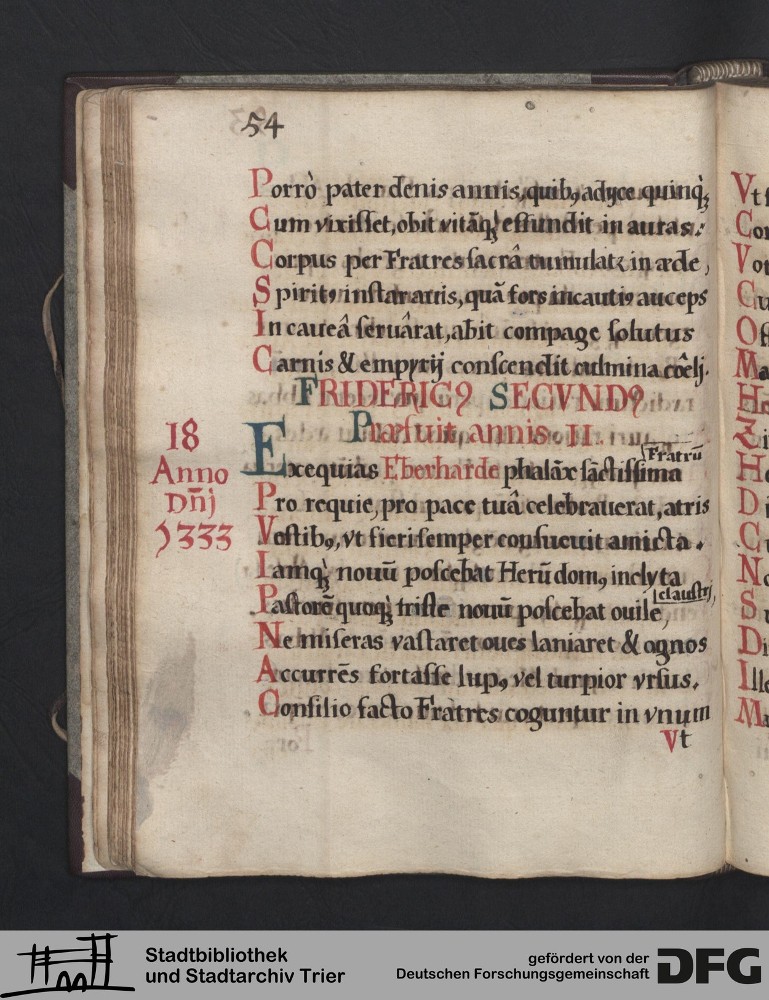 54
Porrò pater denis annis, quibꝫ adyce quinqꝫ
Cum vixisset, obit vitāqꝫ effundit in auras:
Corpus per Fratres sacrâ tumulatꝛ in æde,
Spiritꝰ instar auis, quā fors incautiꝰ auceps
In caueâ seruârat, abit compage solutus
Carnis & empyrij conscendit culmina cœlj.
FRIDERICꝰ SECVNDꝰ
Præfuit annis II
18
Anno
Dn̄j
1333
Fratrū
Exequias Eberharde phalāx sāctissima
Pro requie, pro pace tuâ celebrauerat, atris
Vestibꝰ, vt fieri semper consueuit amicta.
Iamqꝫ nouū poscebat Herū domꝰ inclyta
claustrj,
Pastorē quoqꝫ triste nouū poscebat ouile,
Ne miseras vastaret oues laniaret & agnos
Accurrēs fortasse lupꝰ, vel turpior vrsus.
Consilio facto Fratres coguntur in vnum
Vt
Stadtbibliothek
und Stadtarchiv Trier
gefördert von der
Deutschen Forschungsgemeinschaft
DFG